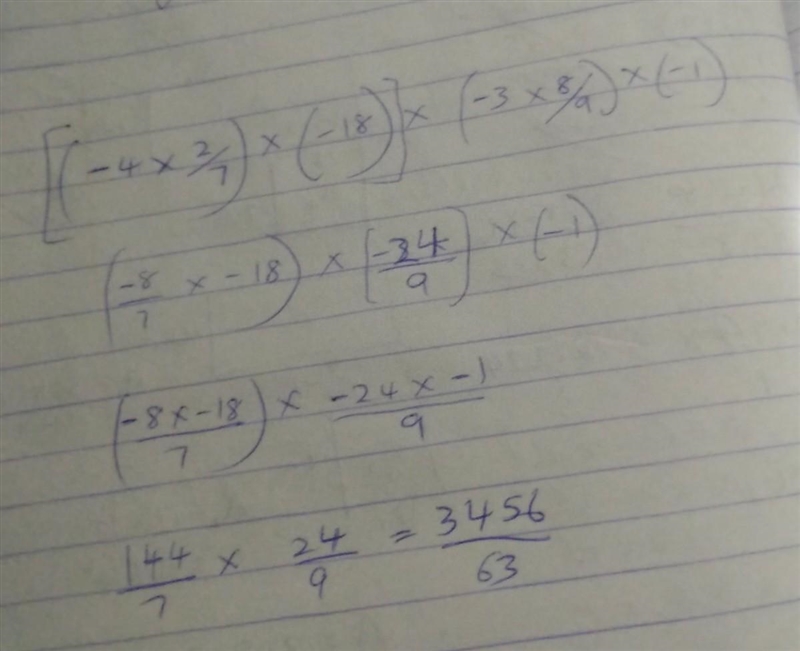 [(-4 × 2/7) × (-18)] × (-3 × 8/9) × (-1)
(-8/7 × -18) × (-24/9) × (-1)
(-8 × -18/7) × -24 × -1/9
144/7 × 24/9 = 3456/63